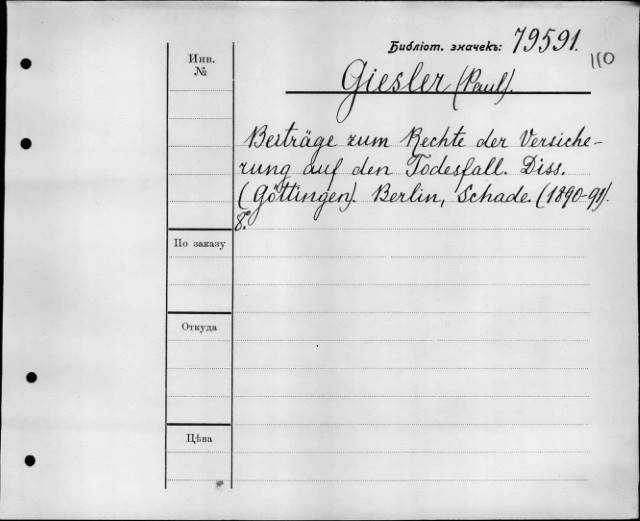 Библіот. значекъ: 79591.
110
Инв.
№
Giesler (Paul).
Beiträge zum Rechte der Versiche-
rung auf den Todesfall. Diss.
(Göttingen). Berlin, Schade. (1890-91).
8.°
По заказу
Откуда
Цѣна